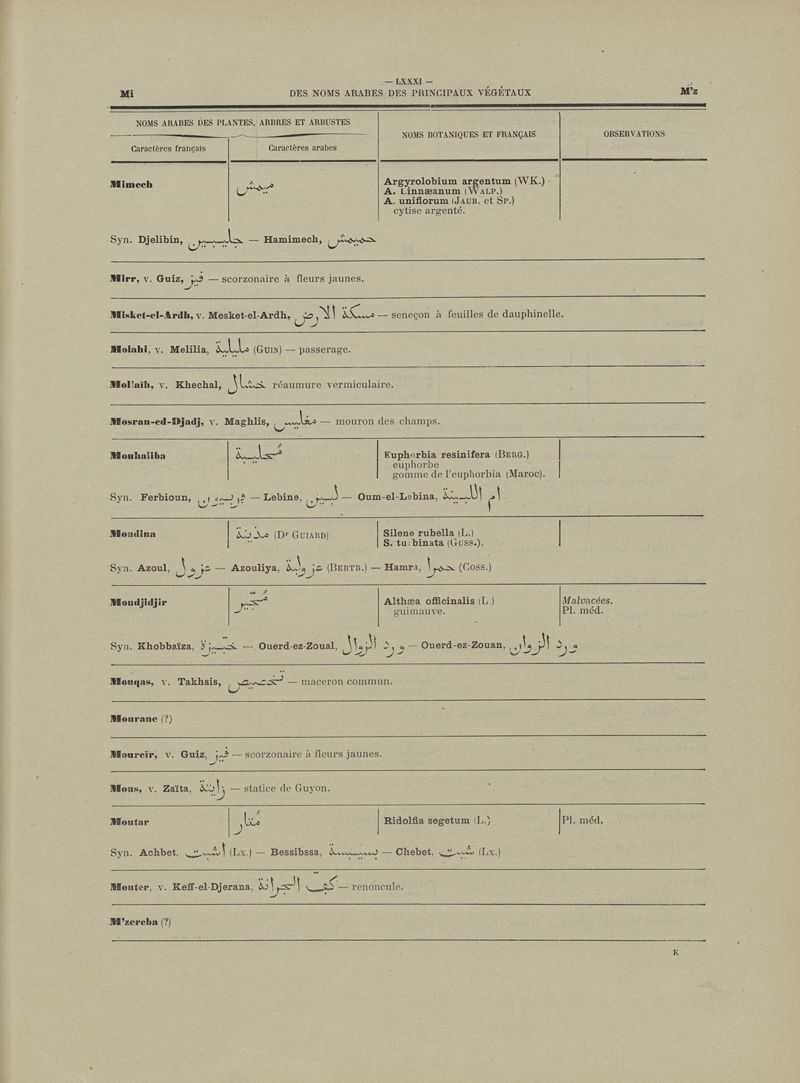 — LXXXI —
Mi DES NOMS ARABES DES PRINCIPAUX VÉGÉTAUX M'z
NOMS ARABES DES PLANTES, ARBRES ET ARBUSTES
NOMS BOTANIQUES ET FRANÇAIS OBSERVATIONS
Caractères français Caractères arabes
Mimech ميمش Argyrolobium argentum (WK.)
A. Linnæanum (WALP.)
A. uniflorum (JAUB. et SP.)
cytise argenté.
Syn. Djelibin, جليبين — Hamimech, حميمش
Mirr, v. Guiz, قيز — scorzonaire à fleurs jaunes.
Misket-el-Ardh, v. Mesket-el-Ardh, مسكة الارض — seneçon à feuilles de dauphinelle.
Molahi, v. Melilia, مليلية (GUIN) — passerage.
Mollaïh, v. Khechal, خشال réaumure vermiculaire.
Mosran-ed-Djadj, v. Maghlis, مغليس — mouron des champs.
Mouhaliba محلبية Euphorbia resinifera (BERG.)
euphorbe
gomme de l'euphorbia (Maroc).
Syn. Ferbioun, فربيون — Lebine, لبين — Oum-el-Lebina, ام اللبينة
Moudina مدينة (Dr GUIARD) Silene rubella (L.)
S. turbinata (GUSS.).
Syn. Azoul, عزول — Azouliya, عزولية (BERTR.) — Hamra, حمرا (COSS.)
Moudjidjir مجير Althæa officinalis (L.) Malvacées.
guimauve. Pl. méd.
Syn. Khobbaïza, خبيزة — Ouerd-ez-Zoual, ورد الزوال — Ouerd-ez-Zouan, ورد الزوان
Mouqas, v. Takhsis, تخصيص — maceron commun.
Mourane (?)
Moureïr, v. Guiz, قيز — scorzonaire à fleurs jaunes.
Mous, v. Zaïta, زايتة — statice de Guyon.
Moutar متار Ridolfia segetum (L.) Pl. méd.
Syn. Achbet, اشبت (LX.) — Bessibssa, بسيبسة — Chebet, شبت (LX.)
Mouter, v. Keff-el-Djerana, كف الجرانة — renoncule.
M'zereba (?)
K